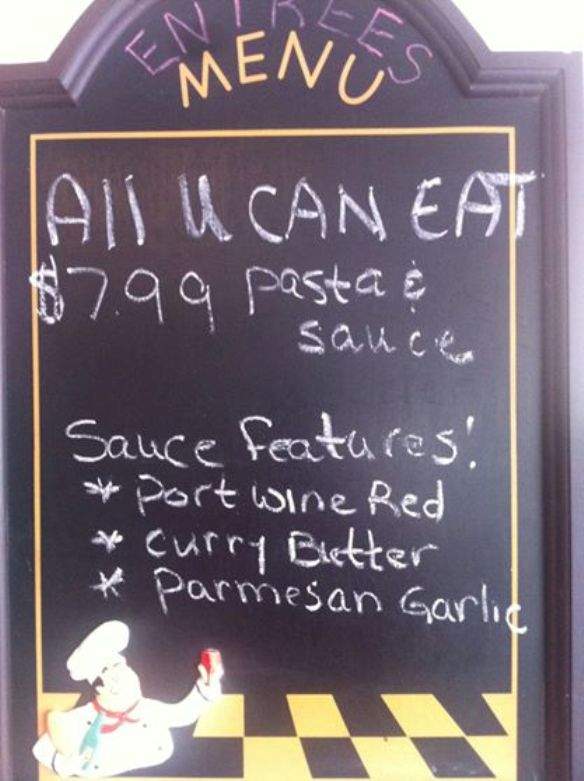 ENTREES
MENU
All U CAN EAT
$7.99 pasta &
sauce
Sauce Features!
* Port Wine Red
* Curry Butter
* Parmesan Garlic